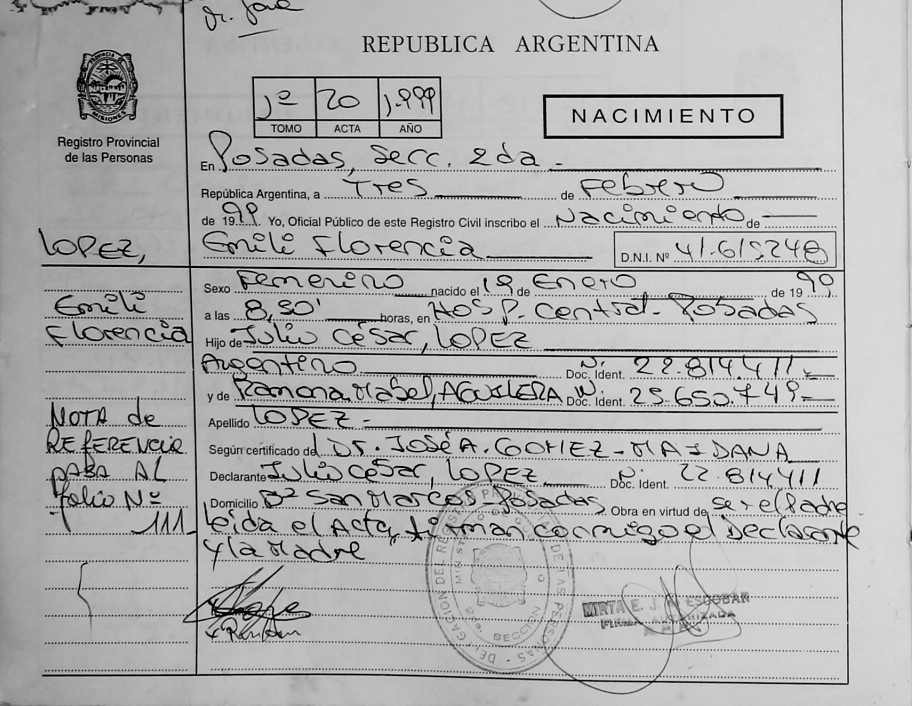 Dr. José
REPUBLICA ARGENTINA
PROVINCIA DE MISIONES
Registro Provincial
de las Personas
1º 20 1.999
TOMO ACTA AÑO
NACIMIENTO
En Posadas, Secc. 2da -
República Argentina, a Tres de Febrero
de 1999 Yo, Oficial Público de este Registro Civil inscribo el Nacimiento de
LOPEZ,
Emili Florencia D.N.I. Nº 41.615.248
Sexo Femenino nacido el 19 de Enero de 1999
Emili
Florencia
a las 8,30' horas, en Hosp. Central - Posadas
Hijo de Julio César, LOPEZ
Argentino Doc. Ident. N: 22.814.411-
y de Ramona Mabel, AGUILERA Doc. Ident. N. 25.650.749-
Apellido LOPEZ -
NOTA de
REFERENCIA
PASA AL
folio Nº
111
Según certificado del Dr. JOSÉ A. GOMEZ - MAIDANA
Declarante Julio César, LOPEZ Doc. Ident. N: 22.814.411
Domicilio Bº San Marcos Posadas. Obra en virtud de ser el Padre
leida el Acta, firman conmigo el Declarante
y la Madre
DELEGACION DEL REGISTRO PROVINCIAL DE LAS PERSONAS
SECCION
MIRTA E. J. ESCOBAR
FIRMA AUTORIZADA